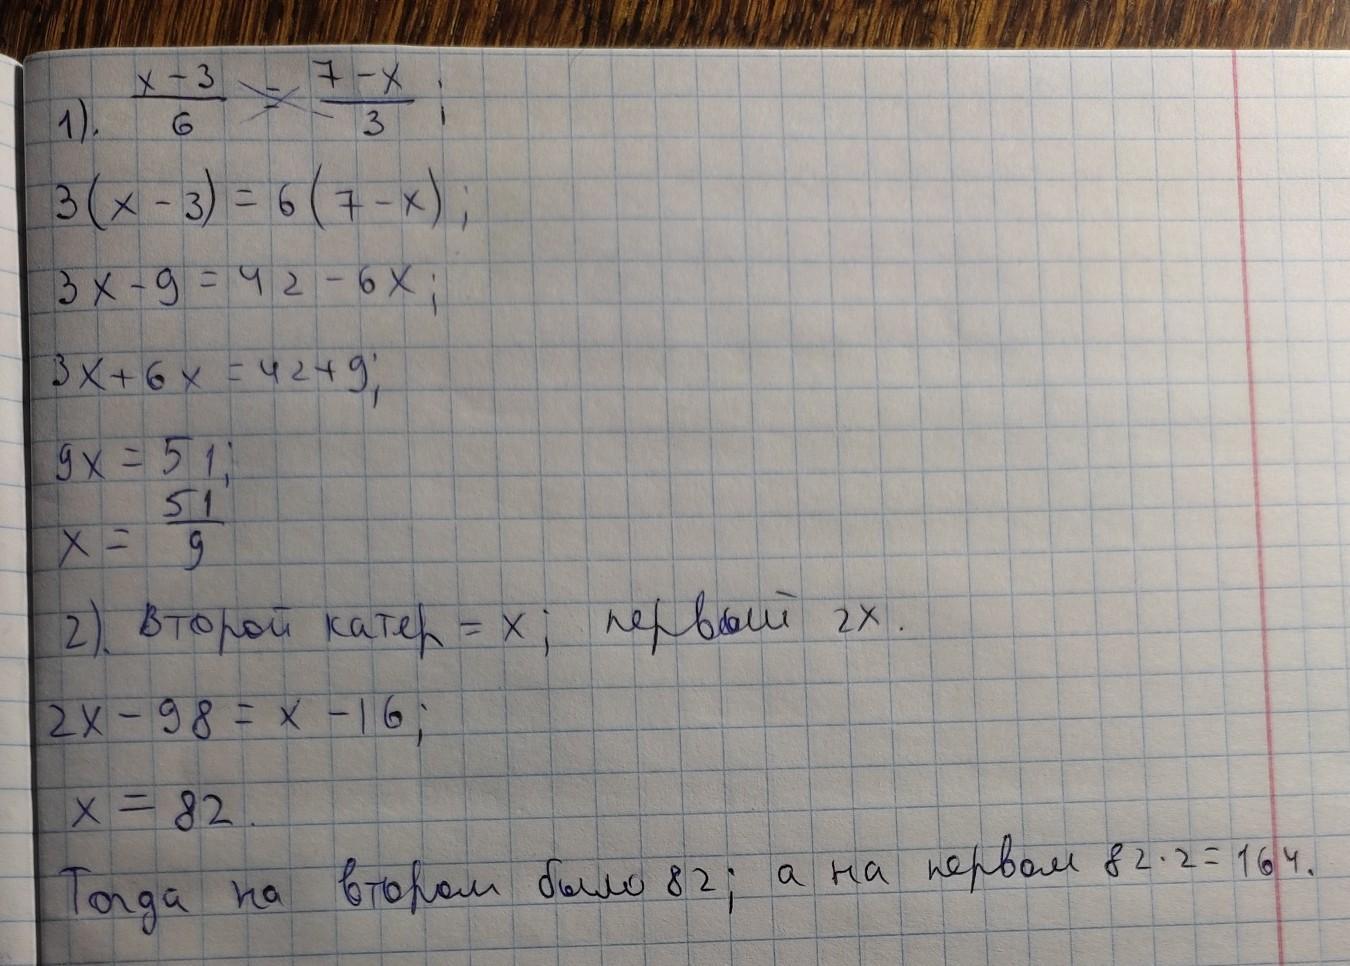 1). (x-3)/6 = (7-x)/3;
3(x-3)=6(7-x);
3x-9=42-6x;
3x+6x=42+9;
9x=51;
x=51/9
2). Второй катер = x; первый 2x.
2x-98=x-16;
x=82.
Тогда на втором было 82; а на первом 82·2=164.